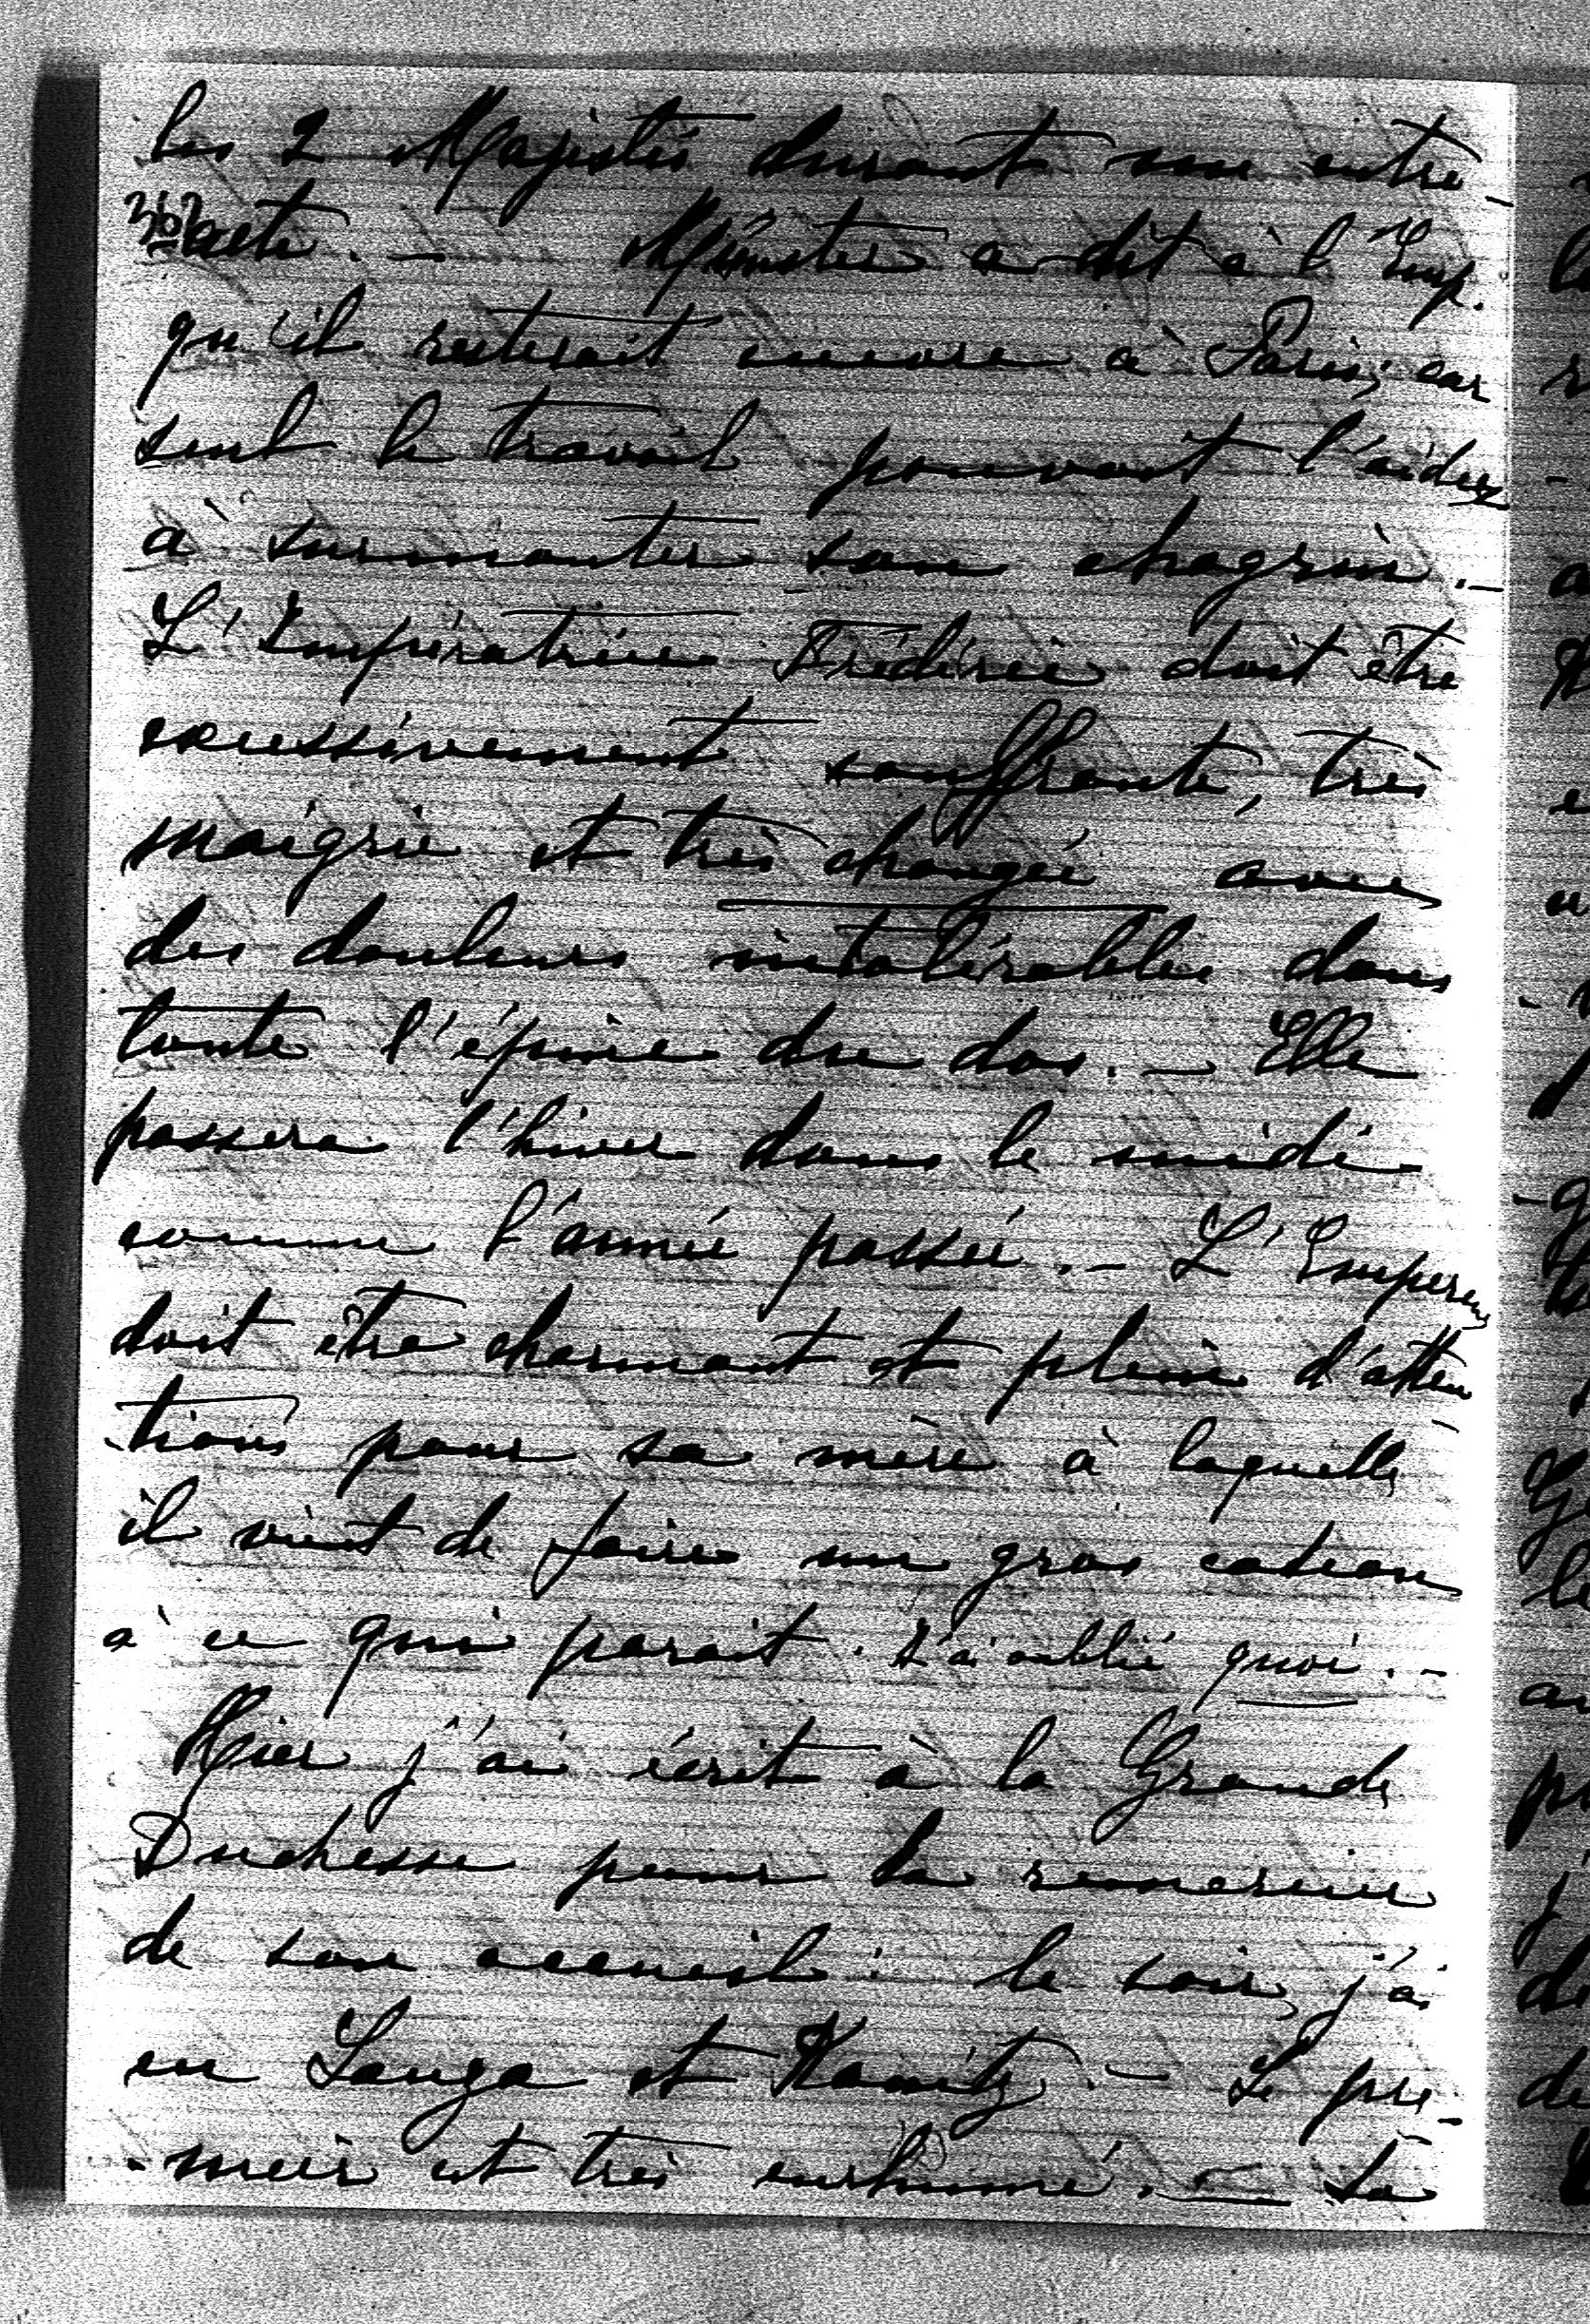 les 2 Majestés durant une entre-
362
-acte. — Münster a dit à l'Emp.
qu'il resterait encore à Paris; car
seul le travail pouvait l'aider
à surmonter son chagrin. —
L'Impératrice Frédéric doit être
excessivement souffrante, très
maigrie et très changée avec
des douleurs intolérables dans
toute l'épine du dos. — Elle
passera l'hiver dans le midi
comme l'année passée. — L'Empereur
doit être charmant et plein d'atten-
-tions pour sa mère à laquelle
il vient de faire un gros cadeau
à ce qui parait. J'ai oublié quoi. —
Hier j'ai écrit à la Grande
Duchesse pour la remercier
de son accueil: le soir, j'ai
eu Lanza et Kanitz. — Le pre-
-meir est très enrhumé. — La